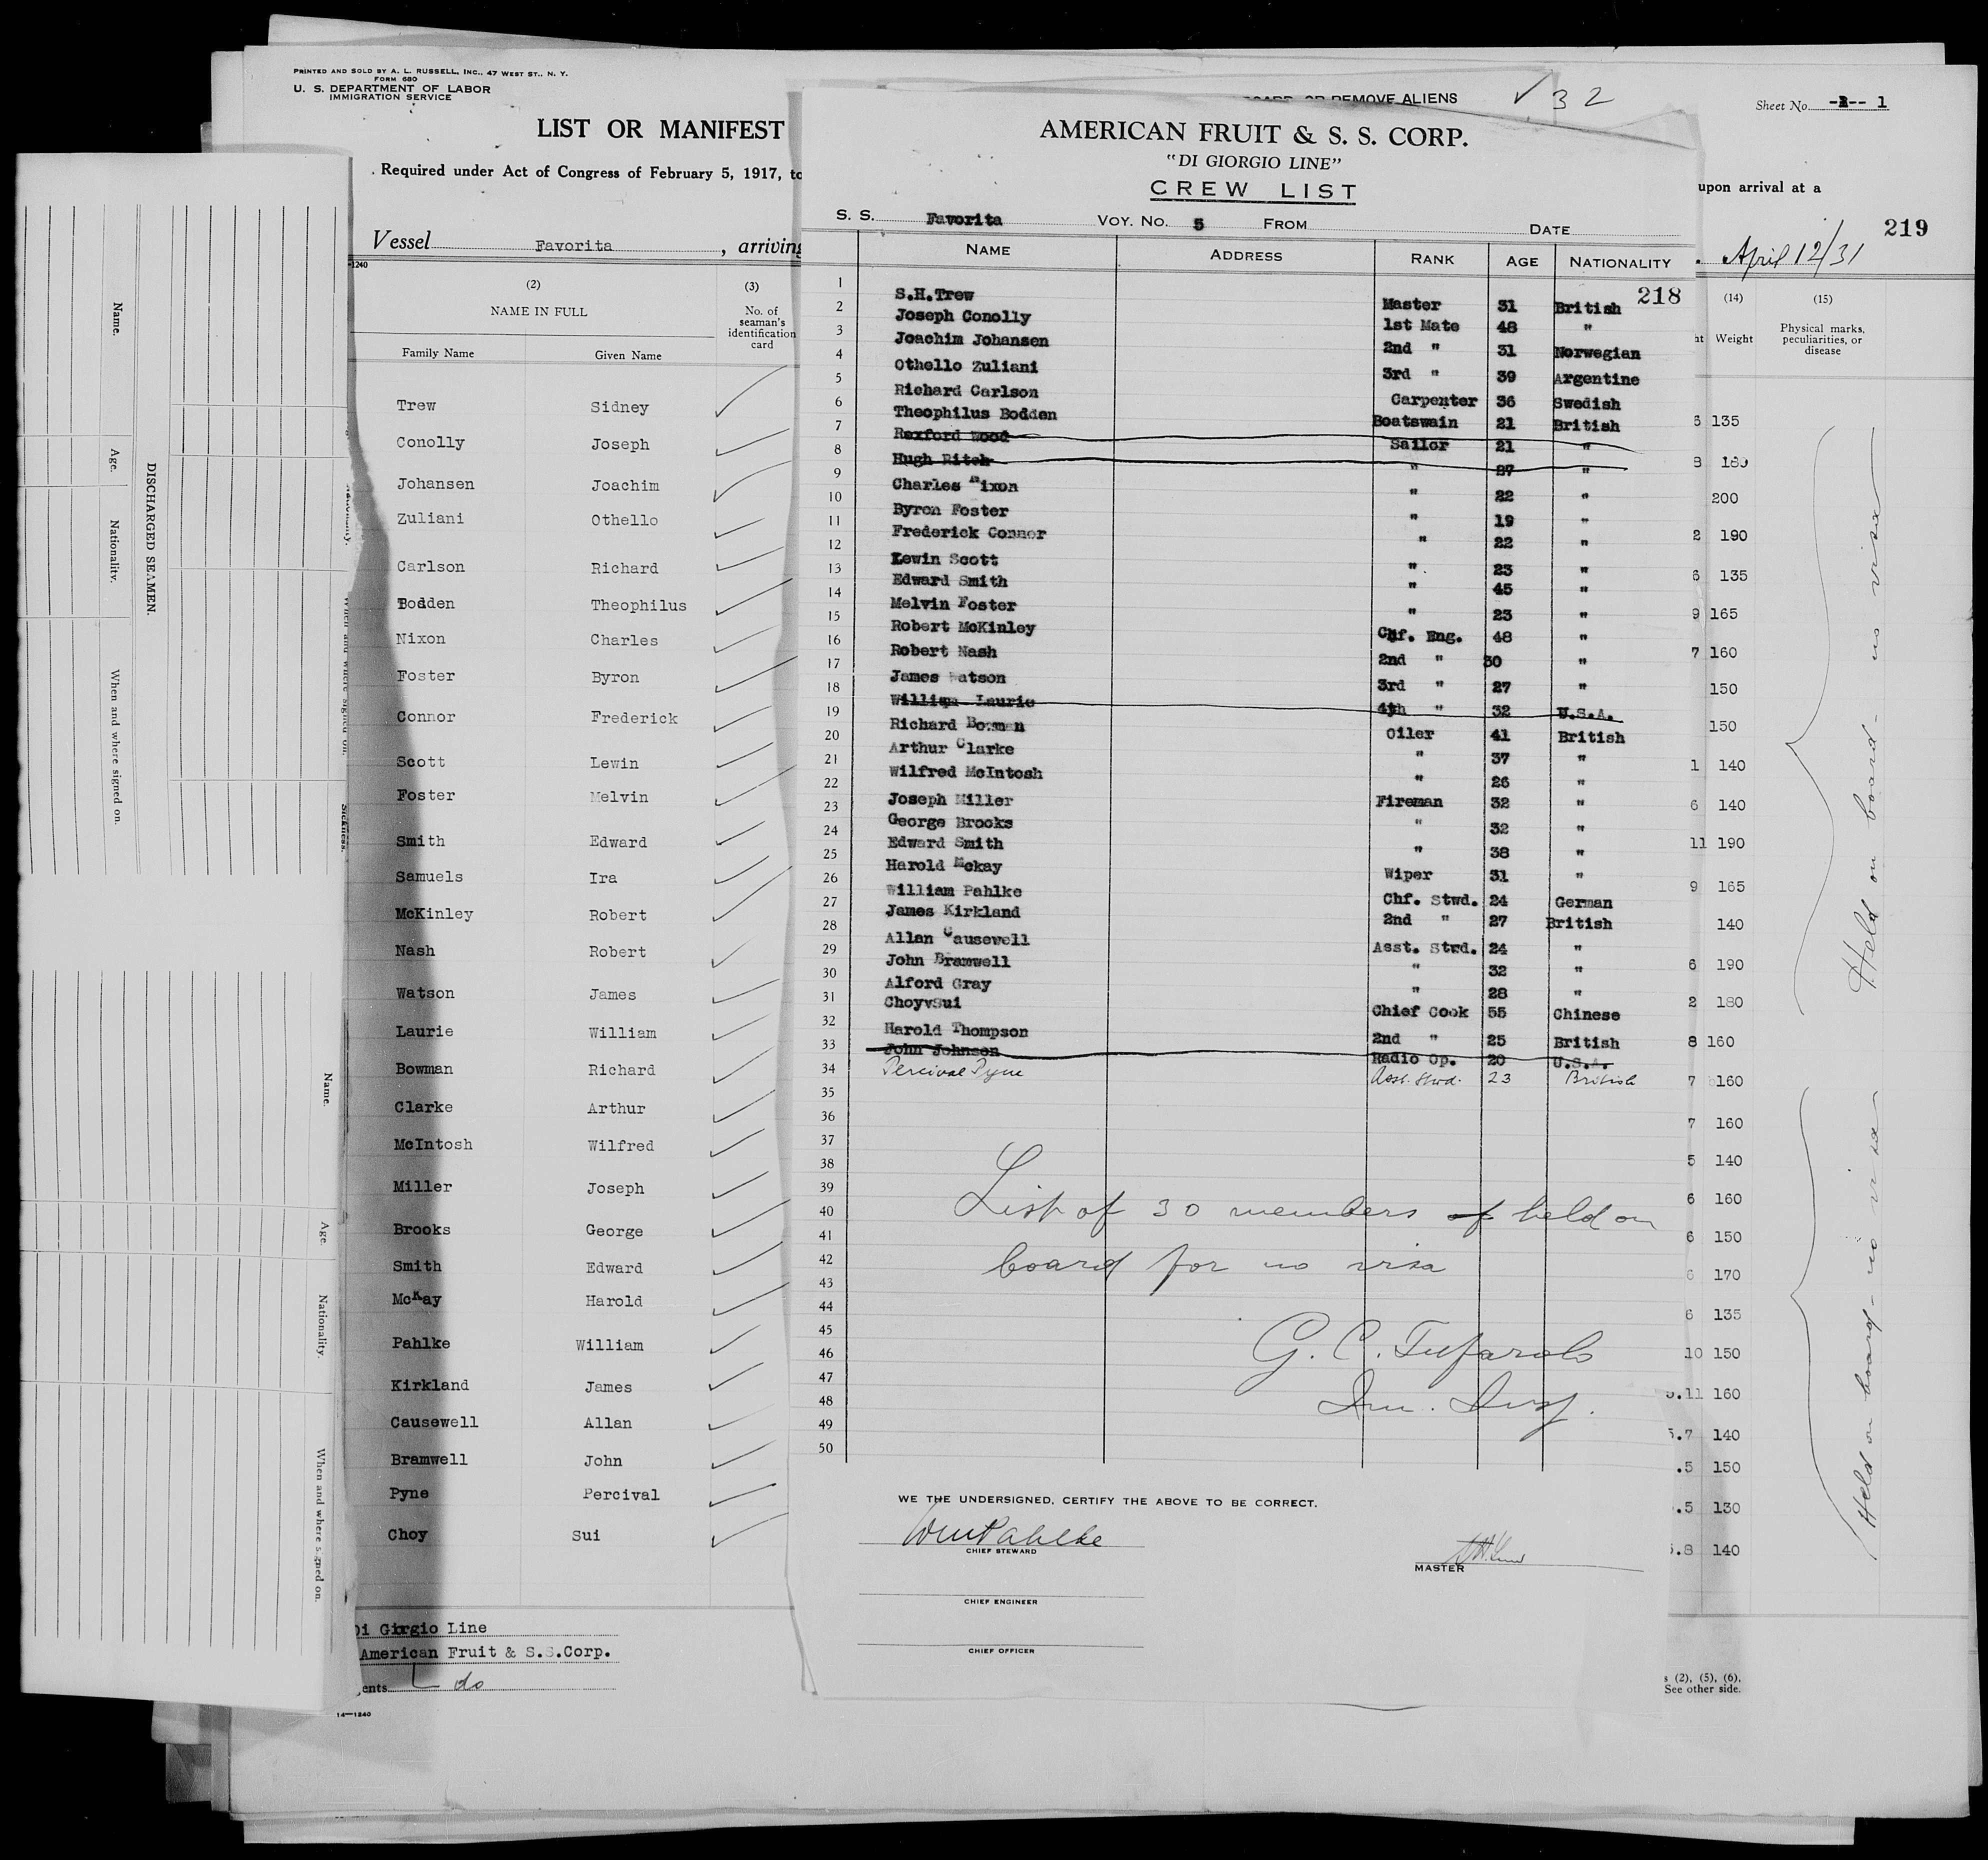 PRINTED AND SOLD BY A. L. RUSSELL, INC., 47 WEST ST., N. Y.
FORM 680
U. S. DEPARTMENT OF LABOR
IMMIGRATION SERVICE
LIST OR MANIFEST
Required under Act of Congress of February 5, 1917, to
Vessel Favorita, arriving
(2) (3)
NAME IN FULL No. of seaman's identification card
Family Name Given Name
Trew Sidney
Conolly Joseph
Johansen Joachim
Zuliani Othello
Carlson Richard
Bodden Theophilus
Nixon Charles
Foster Byron
Connor Frederick
Scott Lewin
Foster Melvin
Smith Edward
Samuels Ira
McKinley Robert
Nash Robert
Watson James
Laurie William
Bowman Richard
Clarke Arthur
McIntosh Wilfred
Miller Joseph
Brooks George
Smith Edward
McKay Harold
Pahlke William
Kirkland James
Causewell Allan
Bramwell John
Pyne Percival
Choy Sui
Di Girgio Line
American Fruit & S.S.Corp.
ents do
14—1240
Name.
Age.
Nationality.
When and where signed on.
DISCHARGED SEAMEN.
Name.
Age.
Nationality.
When and where signed on.
Sickness.
OR REMOVE ALIENS
32
AMERICAN FRUIT & S. S. CORP.
"DI GIORGIO LINE"
CREW LIST
S. S. Favorita VOY. NO. 5 FROM DATE
NAME ADDRESS RANK AGE NATIONALITY
218
1 S.H.Trew Master 31 British
2 Joseph Conolly 1st Mate 48 "
3 Joachim Johansen 2nd " 31 Norwegian
4 Othello Zuliani 3rd " 39 Argentine
5 Richard Carlson Carpenter 36 Swedish
6 Theophilus Bodden Boatswain 21 British
7 Rexford Wood Sailor 21 "
8 Hugh Ritch " 27 "
9 Charles Nixon " 22 "
10 Byron Foster " 19 "
11 Frederick Connor " 22 "
12 Lewin Scott " 23 "
13 Edward Smith " 45 "
14 Melvin Foster " 23 "
15 Robert McKinley Chf. Eng. 48 "
16 Robert Nash 2nd " 30 "
17 James Watson 3rd " 27 "
18 William Laurie 4th " 32 U.S.A.
19 Richard Bowman Oiler 41 British
20 Arthur Clarke " 37 "
21 Wilfred McIntosh " 26 "
22 Joseph Miller Fireman 32 "
23 George Brooks " 32 "
24 Edward Smith " 38 "
25 Harold Mckay Wiper 31 "
26 William Pahlke Chf. Stwd. 24 German
27 James Kirkland 2nd " 27 British
28 Allan Causewell Asst. Stwd. 24 "
29 John Bramwell " 32 "
30 Alford Gray " 28 "
31 ChoyvSui Chief Cook 55 Chinese
32 Harold Thompson 2nd " 25 British
33 John Johnson Radio Op. 20 U.S.A.
34 Percival Pyne Asst. Stwd. 23 British
35
36
37
38
39
40
41
42
43
44
45
46
47
48
49
50
List of 30 members of held on
board for no visa
G. C. Tufarolo
Imm. Insp.
WE THE UNDERSIGNED, CERTIFY THE ABOVE TO BE CORRECT.
Wm Pahlke
CHIEF STEWARD
MASTER
CHIEF ENGINEER
CHIEF OFFICER
Sheet No. 1
upon arrival at a
219
April 12/31
(14) (15)
ht Weight Physical marks, peculiarities, or disease
6 135
8 160
200
2 190
6 135
9 165
7 160
150
150
1 140
6 140
11 190
9 165
140
6 190
2 180
8 160
7 160
7 160
5 140
6 160
6 150
6 170
6 135
10 150
5.11 160
5.7 140
.5 150
.5 130
5.8 140
Held on board - no visa
Held on board - no visa
s (2), (5), (6).
See other side.